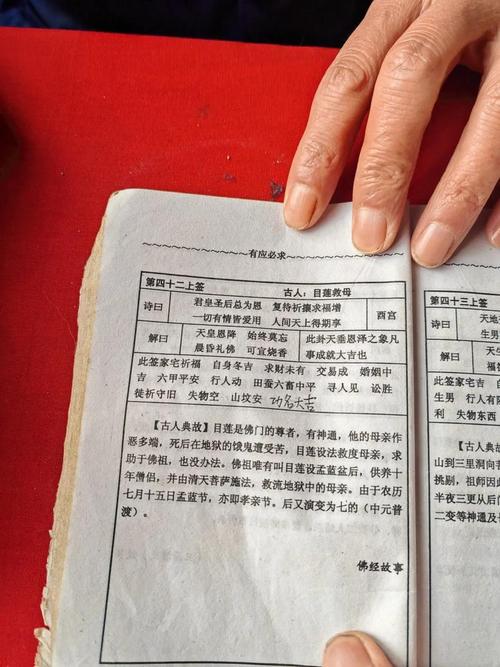 有应必求
第四十二上签 古人：目莲救母
诗曰 君皇圣后总为恩 复待祈攘求福增
一切有情皆爱用 人间天上得期享 西宫
解曰 天皇恩降 始终莫忘
晨昏礼佛 可宜烧香
此卦天垂恩泽之象凡
事成就大吉也
此签家宅祈福 自身冬吉 求财未有 交易成 婚姻中
吉 六甲平安 行人动 田蚕六畜中平 寻人见 讼胜
徒祈守旧 失物空 山坟安 功名大吉
【古人典故】目莲是佛门的尊者，有神通，他的母亲作
恶多端，死后在地狱的饿鬼遭受苦，目莲设法救度母亲，求
助于佛祖，也没办法。佛祖唯有叫目莲设盂蓝盆后，供养十
年僧侣，并由清天菩萨施法，救流地狱中的母亲。由于农历
七月十五日盂蓝节，亦即孝亲节。后又演变为七的（中元普
渡）。
佛经故事
第四十三上签
诗曰 天地
生男
解曰
此签家宅吉
生男 行人
利 失物东西
【古人典故】
山到三里洞向
挑剔，祖师因此
半夜三更从后
二变等神通及